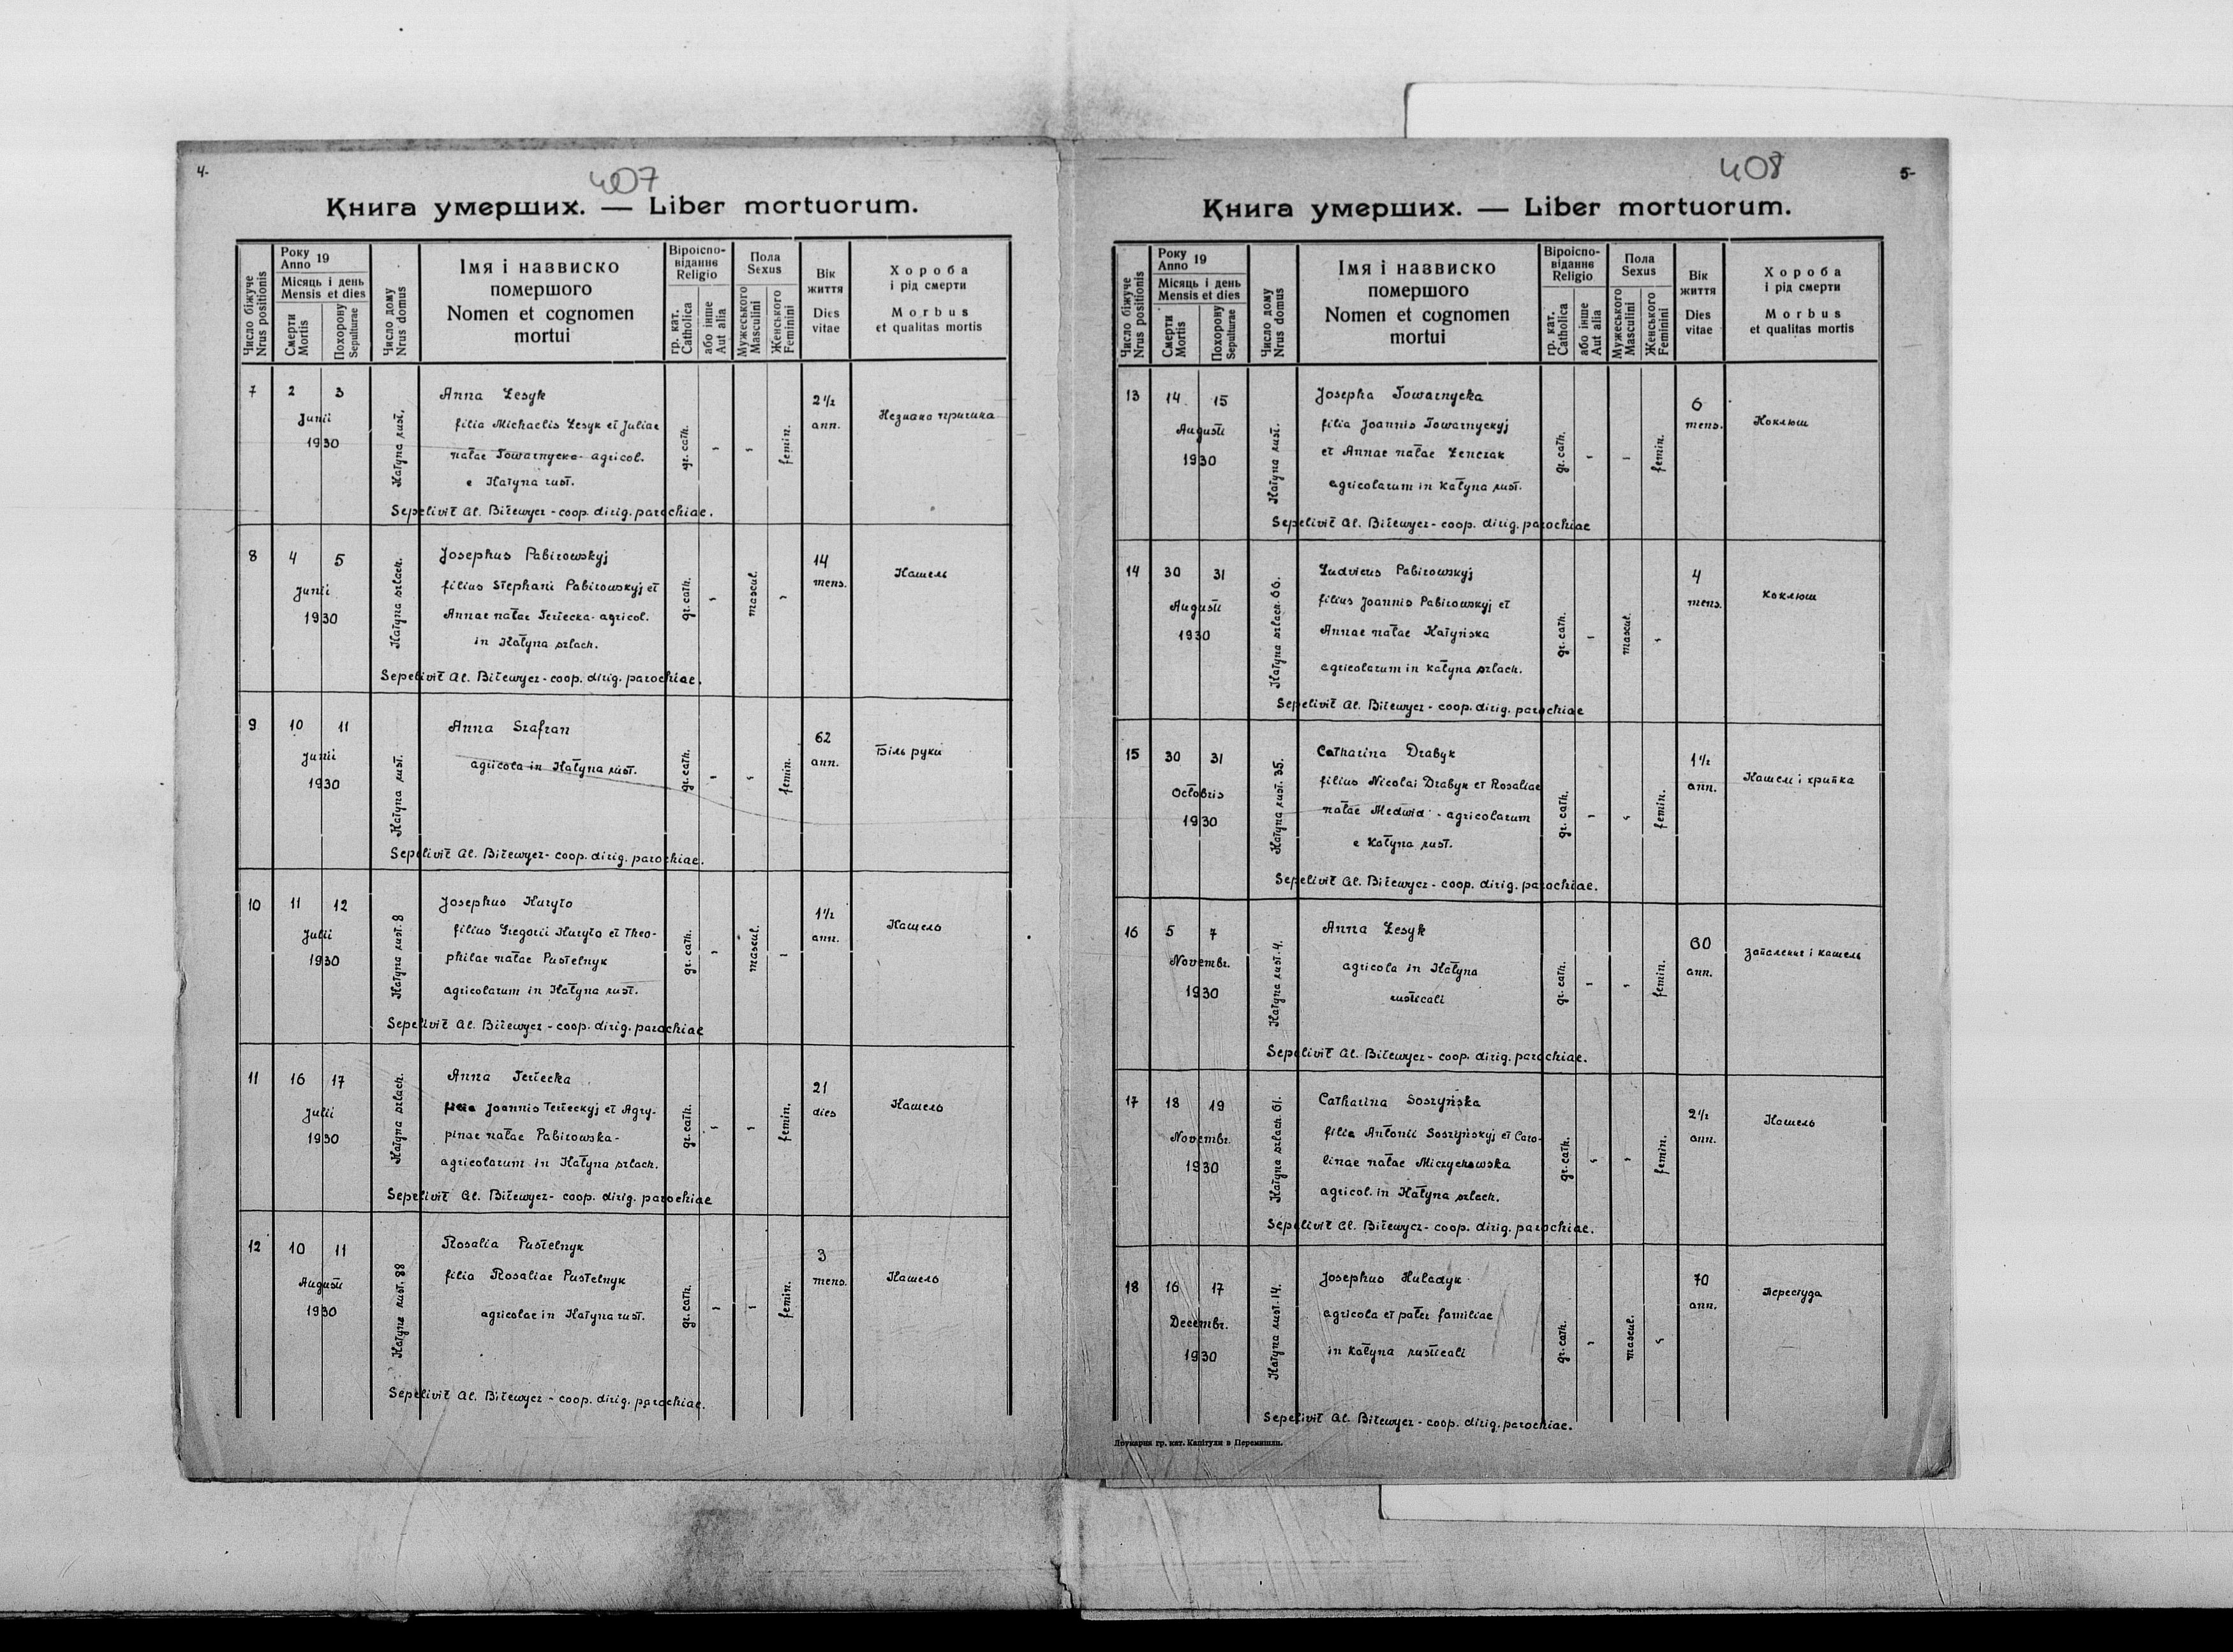 4.
407
Книга умерших. — Liber mortuorum.
Число біжуче
Nrus positionis
Року
Anno 19
Місяць і день
Mensis et dies
Смерти
Mortis
Похорону
Sepulturae
Число дому
Nrus domus
Імя і назвиско
помершого
Nomen et cognomen
mortui
Віроіспо-
віданнє
Religio
гр. кат.
Catholica
або інше
Aut alia
Пола
Sexus
Мужеського
Masculini
Женського
Feminini
Вік
життя
Dies
vitae
Хороба
і рід смерти
Morbus
et qualitas mortis
7 2 3
Junii
1930
Katyna rust.
Anna Lesyk
filia Michaelis Lesyk et Juliae
natae Towarnycka - agricol.
e Katyna rust.
gr. cath. - - femin.
2 1/2
ann.
Незнана причина
Sepelivit Al. Biłewycz - coop. dirig. parochiae.
8 4 5
Junii
1930
Katyna szlach.
Josephus Pabirowskyj
filius Stephani Pabirowskyj et
Annae natae Terlecka - agricol.
in Katyna szlach.
gr. cath. - mascul. -
14
mens.
Кашель
Sepelivit Al. Biłewycz - coop. dirig. parochiae.
9 10 11
Junii
1930
Katyna rust.
Anna Szafran
agricola in Katyna rust.
gr. cath. - - femin.
62
ann.
Біль руки
Sepelivit Al. Biłewycz - coop. dirig. parochiae.
10 11 12
Julii
1930
Katyna rust. 8
Josephus Kuryło
filius Gregorii Kuryło et Theo-
philae natae Pustelnyk
agricolarum in Katyna rust.
gr. cath. - mascul. -
1 1/2
ann.
Кашель
Sepelivit Al. Biłewycz - coop. dirig. parochiae
11 16 17
Julii
1930
Katyna szlach.
Anna Terlecka
filia Joannis Terleckyj et Agry-
pinae natae Pabirowska -
agricolarum in Katyna szlach.
gr. cath. - - femin.
21
dies
Кашель
Sepelivit Al. Biłewycz - coop. dirig. parochiae
12 10 11
Augusti
1930
Katyna rust. 88
Rosalia Pustelnyk
filia Rosaliae Pustelnyk
agricolae in Katyna rust.
gr. cath. - - femin.
3
mens.
Кашель
Sepelivit Al. Biłewycz - coop. dirig. parochiae.
5-
408
Книга умерших. — Liber mortuorum.
Число біжуче
Nrus positionis
Року
Anno 19
Місяць і день
Mensis et dies
Смерти
Mortis
Похорону
Sepulturae
Число дому
Nrus domus
Імя і назвиско
помершого
Nomen et cognomen
mortui
Віроіспо-
віданнє
Religio
гр. кат.
Catholica
або інше
Aut alia
Пола
Sexus
Мужеського
Masculini
Женського
Feminini
Вік
життя
Dies
vitae
Хороба
і рід смерти
Morbus
et qualitas mortis
13 14 15
Augusti
1930
Katyna rust.
Josepha Towarnycka
filia Joannis Towarnyckyj
et Annae natae Lenczak
agricolarum in Katyna rust.
gr. cath. - - femin.
6
mens.
Коклюш
Sepelivit Al. Biłewycz - coop. dirig. parochiae
14 30 31
Augusti
1930
Katyna szlach. 66.
Ludvicus Pabirowskyj
filius Joannis Pabirowskyj et
Annae natae Katyńska
agricolarum in Katyna szlach.
gr. cath. - mascul. -
4
mens.
Коклюш
Sepelivit Al. Biłewycz - coop. dirig. parochiae
15 30 31
Octobris
1930
Katyna rust. 35.
Catharina Drabyk
filius Nicolai Drabyk et Rosaliae
natae Medwid - agricolarum
e Katyna rust.
gr. cath. - - femin.
1 1/2
ann.
Кашель і хрипка
Sepelivit Al. Biłewycz - coop. dirig. parochiae.
16 5 7
Novembr.
1930
Katyna rust. 4.
Anna Lesyk
agricola in Katyna
rusticali
gr. cath. - - femin.
60
ann.
Запалення і кашель
Sepelivit Al. Biłewycz - coop. dirig. parochiae.
17 18 19
Novembr.
1930
Katyna szlach. 61.
Catharina Soszyńska
filia Antonii Soszyńskyj et Caro-
linae natae Miczychowska
agricol. in Katyna szlach.
gr. cath. - - femin.
2 1/2
ann.
Кашель
Sepelivit Al. Biłewycz - coop. dirig. parochiae.
18 16 17
Decembr.
1930
Katyna rust. 14.
Josephus Huladyk
agricola et pater familiae
in Katyna rusticali
gr. cath. - mascul. -
70
ann.
Пересtуда
Sepelivit Al. Biłewycz - coop. dirig. parochiae.
Друкарня гр. кат. Капітули в Перемишли.